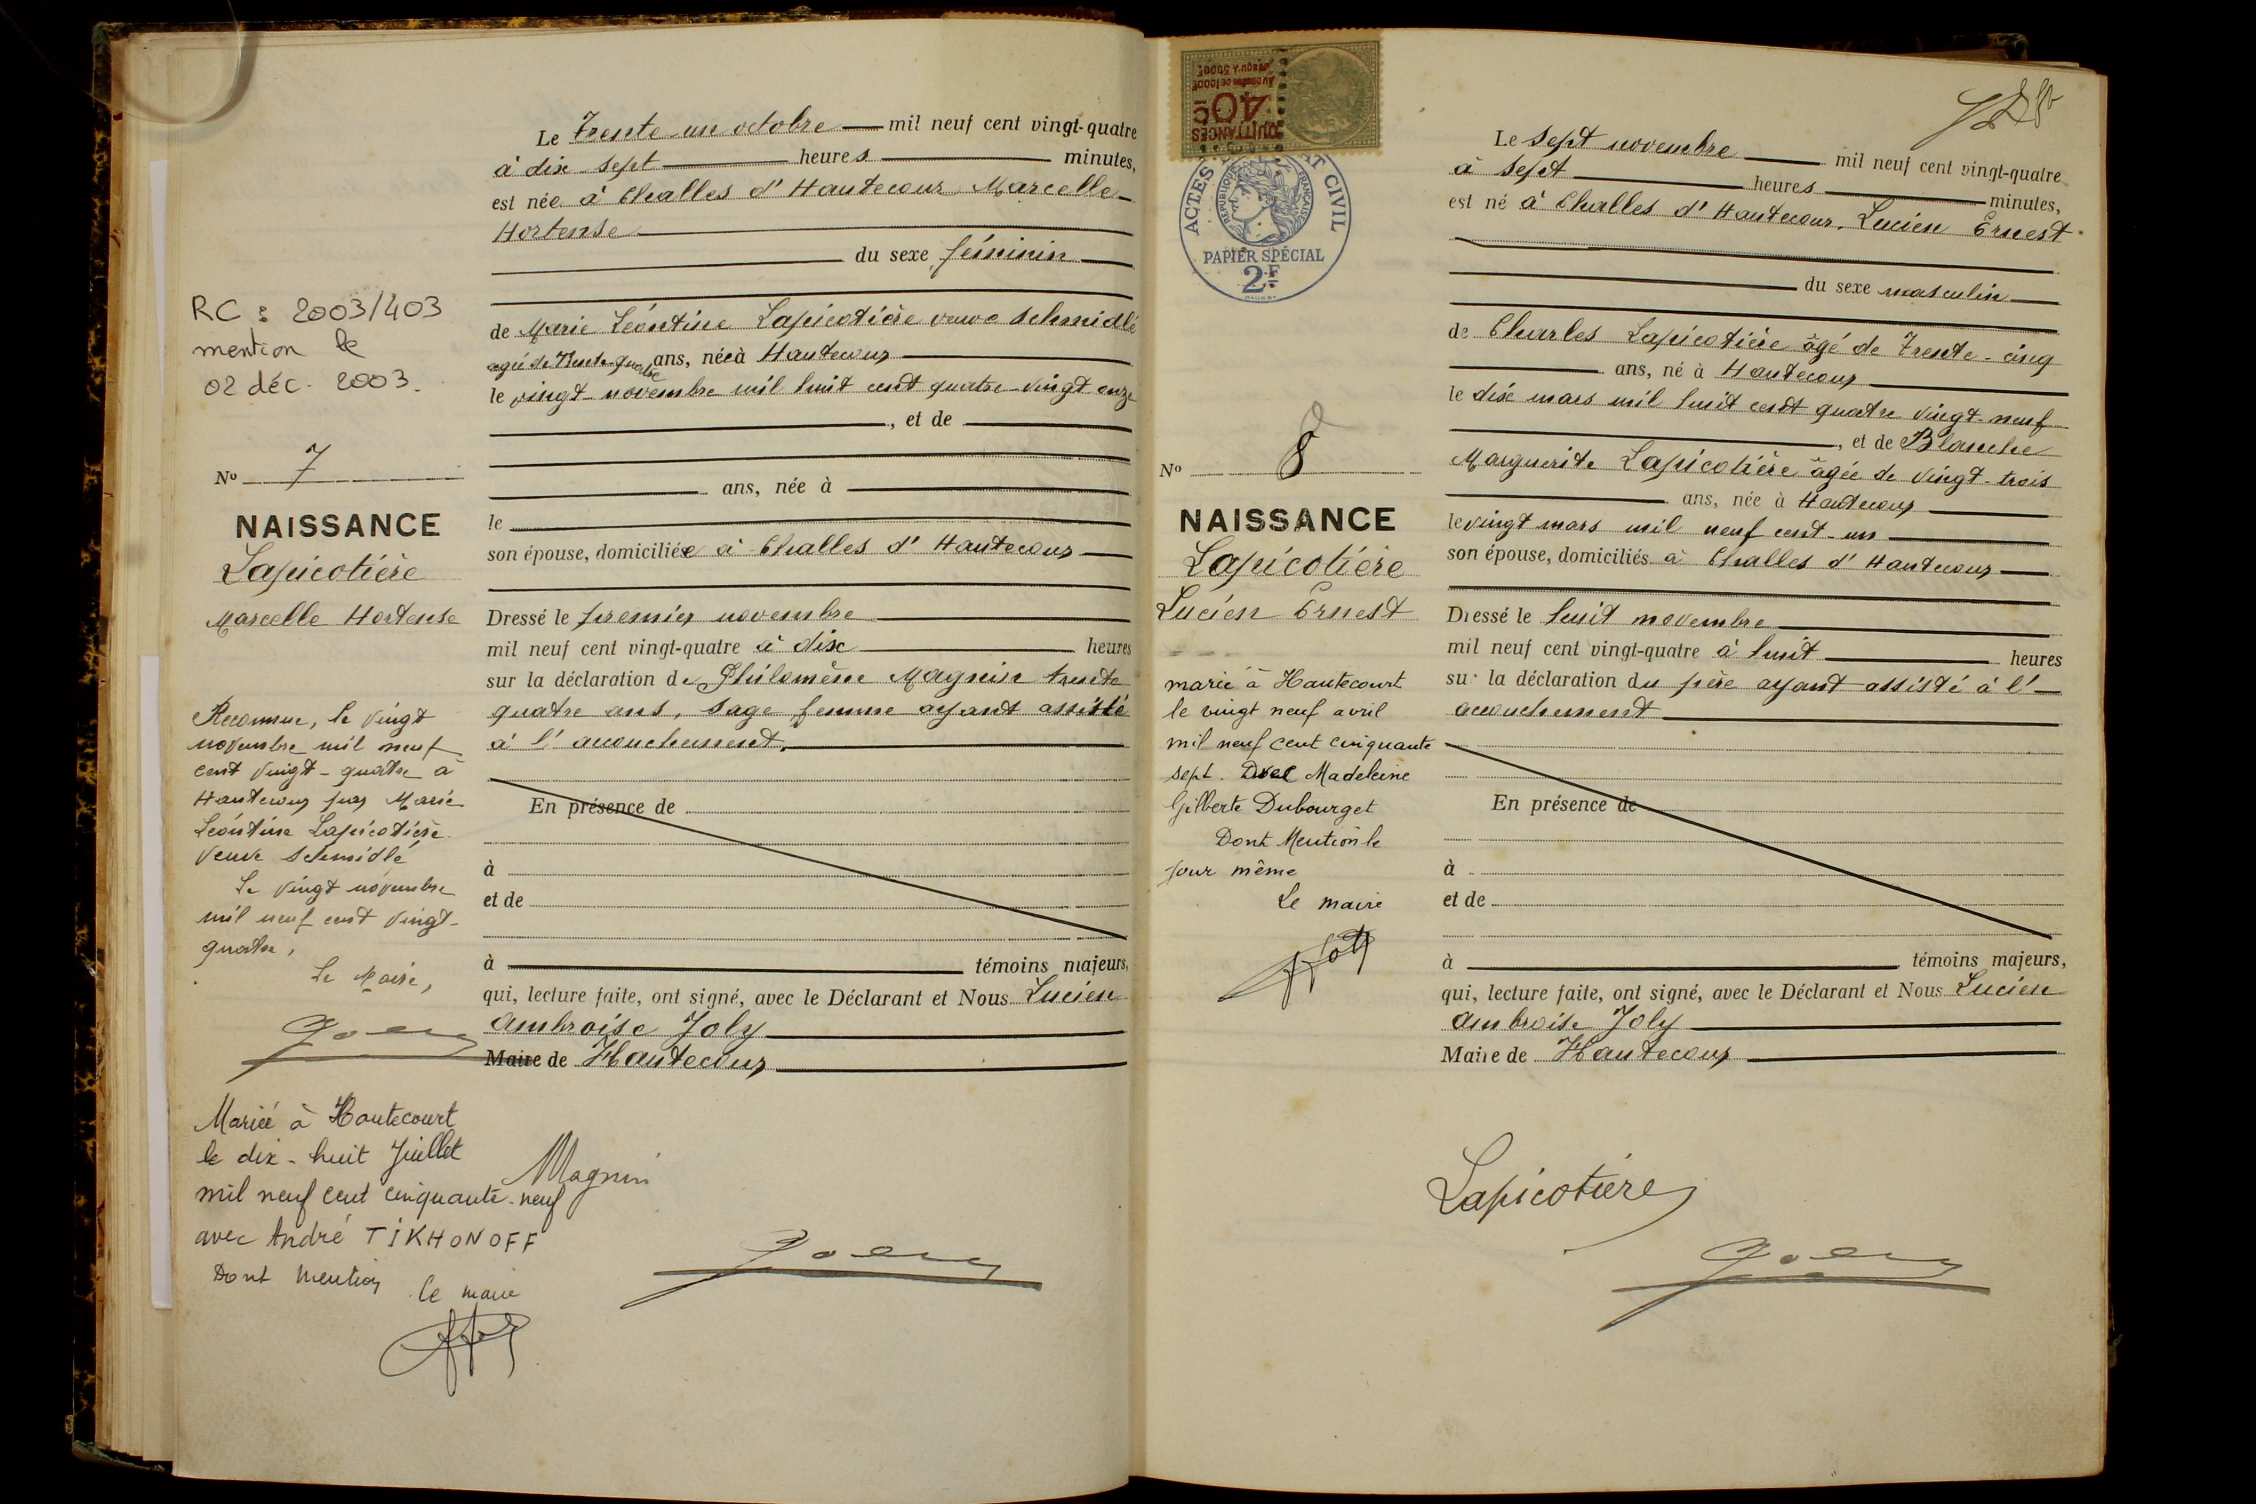 Le Trente-un octobre mil neuf cent vingt-quatre
à dix-sept heures minutes,
est née à Challes d'Hautecour, Marcelle
Hortense
du sexe féminin
de Marie Léontine Lapicotière veuve Schmidlé
agée de Trente-quatre ans, née à Hautecour
le vingt novembre mil huit cent quatre-vingt onze
, et de
ans, née à
le
son épouse, domiciliée à Challes d'Hautecour
Dressé le premier novembre
mil neuf cent vingt-quatre à dix heures
sur la déclaration de Philomène Magnin trente
quatre ans, sage femme ayant assisté
à l'accouchement.
En présence de
à
et de
à témoins majeurs,
qui, lecture faite, ont signé, avec le Déclarant et Nous Lucien
Ambroise Joly
Maire de Hautecour
Magnin
Joly
RC : 2003/403
mention le
02 déc. 2003.
No 7
NAISSANCE
Lapicotière
Marcelle Hortense
Reconnue, le vingt
novembre mil neuf
cent vingt-quatre à
Hautecour par Marie
Léontine Lapicotière
Veuve Schmidlé
Le vingt novembre
mil neuf cent vingt-
quatre,
Le Maire,
Joly
Mariée à Hautecourt
le dix-huit Juillet
mil neuf cent cinquante-neuf
avec André TIKHONOFF
Dont mention
le maire
QUITTANCES
40c
AU DESSUS DE 1000F
JUSQU'À 3000F
ACTES CIVIL
REPUBLIQUE FRANÇAISE
PAPIER SPÉCIAL
2F
Le sept novembre mil neuf cent vingt-quatre
à sept heures minutes,
est né à Challes d'Hautecour, Lucien Ernest
du sexe masculin
de Charles Lapicotière âgé de Trente-cinq
ans, né à Hautecour
le dix mars mil huit cent quatre vingt-neuf
, et de Blanche
Marguerite Lapicotière âgée de vingt-trois
ans, née à Hautecour
le vingt mars mil neuf cent-un
son épouse, domiciliés à Challes d'Hautecour
Dressé le huit novembre
mil neuf cent vingt-quatre à huit heures
sur la déclaration du père ayant assisté à l'
accouchement
En présence de
à
et de
à témoins majeurs,
qui, lecture faite, ont signé, avec le Déclarant et Nous Lucien
Ambroise Joly
Maire de Hautecour
Lapicotière
Joly
No 8
NAISSANCE
Lapicotière
Lucien Ernest
marié à Hautecourt
le vingt neuf avril
mil neuf cent cinquante
sept. Avec Madeleine
Gilberte Dubourget
Dont Mention le
jour même
Le maire